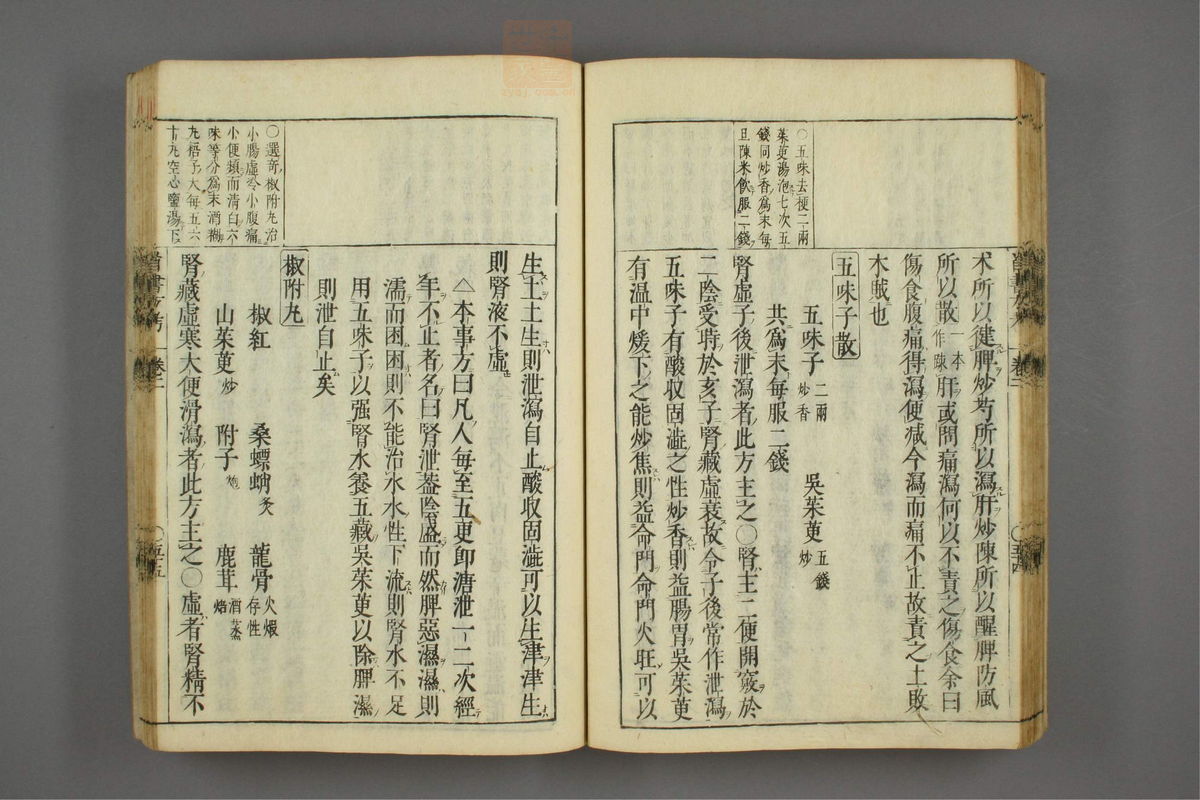 ○五味去梗二兩
茱萸湯泡七次五
錢同炒香為末每
旦陳米飲服二錢
朮所以健脾炒芍所以瀉肝炒陳所以醒脾防風
所以散一本作陳肝或問痛瀉何以不責之傷食余曰
傷食腹痛得瀉便減今瀉而痛不止故責之土敗
木賊也
五味子散
五味子二兩炒香 吳茱萸五錢炒
共為末每服二錢
腎虛子後泄瀉者此方主之○腎主二便開竅於
二陰受時於亥子腎藏虛衰故令子後常作泄瀉
五味子有酸収固澁之性炒香則益腸胃吳茱萸
有温中煖下之能炒焦則益命門命門火旺可以
○選奇椒附丸治
小腸虛冷小腹痛
小便頻而清白六
味等分為末酒糊
丸梧子大每五六
十丸空心鹽湯下
生土土生則泄瀉自止酸収固澁可以生津津生
則腎液不虛
△本事方曰凡人每至五更即溏泄一二次經
年不止者名曰腎泄葢陰盛而然脾惡濕濕則
濡而困困則不能治水水性下流則腎水不足
用五味子以强腎水養五藏吳茱萸以除脾濕
則泄自止矣
椒附丸
椒紅 桑螵蛸炙 龍骨火煅存性
山茱萸炒 附子炮 鹿茸酒蒸焙
腎藏虛寒大便滑瀉者此方主之○虛者腎精不
卷二
○五十四
卷二
○五十五